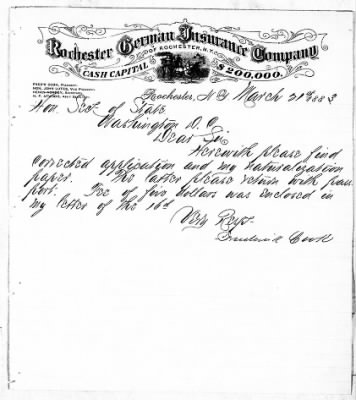 Rochester German Insurance Company
OF ROCHESTER, N.Y.
CASH CAPITAL $200,000.
FRED'K COOK, President.
HON. JOHN LUTES, Vice President.
Rochester, N.Y. March 21st 1883
Hon. Sect of State
Washington D.C.
Dear Sir
Herewith please find
corrected application and my naturalization
paper. The latter please return with pass
port. Fee of five dollars was enclosed in
my letter of the 16th
Very Resp.
Frederick Cook